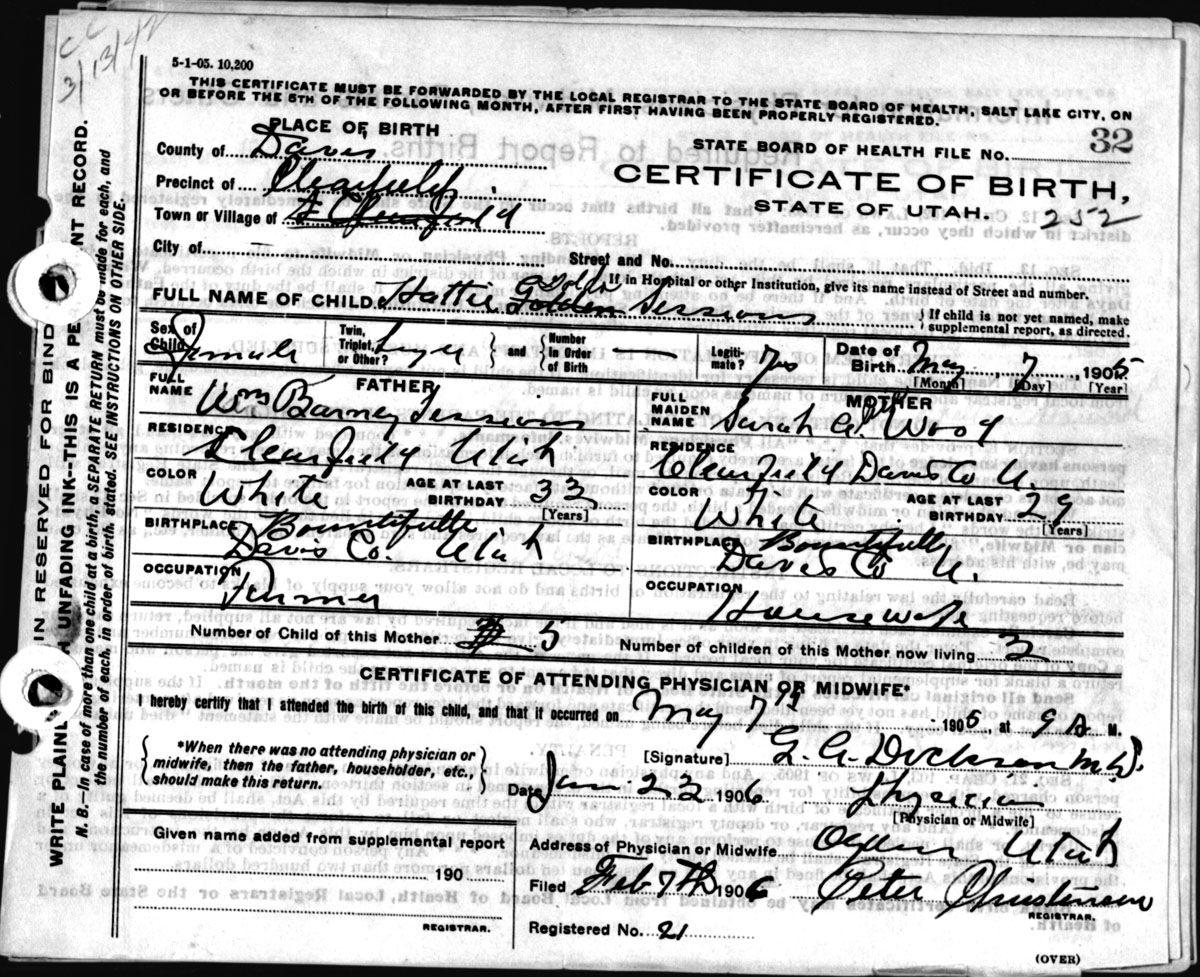 CC
3/13/42
5-1-05. 10,200
THIS CERTIFICATE MUST BE FORWARDED BY THE LOCAL REGISTRAR TO THE STATE BOARD OF HEALTH, SALT LAKE CITY, ON
OR BEFORE THE 5TH OF THE FOLLOWING MONTH, AFTER FIRST HAVING BEEN PROPERLY REGISTERED.
PLACE OF BIRTH
STATE BOARD OF HEALTH FILE NO. 32
County of Davis
CERTIFICATE OF BIRTH,
Precinct of Clearfield
STATE OF UTAH. 252
Town or Village of Clearfield
City of — Street and No.
If in Hospital or other Institution, give its name instead of Street and number.
FULL NAME OF CHILD. Hattie Golden Sessions
If child is not yet named, make supplemental report, as directed.
Sex of Child Female Twin, Triplet, or Other? and Number In Order of Birth — Legiti- mate? Yes Date of Birth May 7, 1905
[Month] [Day] [Year]
FATHER
FULL NAME Wm Barney Sessions
RESIDENCE Clearfield Utah
COLOR White AGE AT LAST BIRTHDAY 33 [Years]
BIRTHPLACE Bountifull
Davis Co Utah
OCCUPATION Farmer
MOTHER
FULL MAIDEN NAME Sarah A Wood
RESIDENCE Clearfield Davis Co U.
COLOR White AGE AT LAST BIRTHDAY 29 [Years]
BIRTHPLACE Bountifull
Davis Co U.
OCCUPATION Housewife
Number of Child of this Mother 5 Number of children of this Mother now living 3
CERTIFICATE OF ATTENDING PHYSICIAN OR MIDWIFE*
I hereby certify that I attended the birth of this child, and that it occurred on May 7th 1905, at 9 A. M.
*When there was no attending physician or midwife, then the father, householder, etc., should make this return.
[Signature] M.D.
Date Jan 22 1906 Physician
[Physician or Midwife]
Given name added from supplemental report
190
REGISTRAR.
Address of Physician or Midwife Ogden Utah
Filed Feb 7th 1906 Peter Christensen
REGISTRAR.
Registered No. 21
(OVER)
IN RESERVED FOR BIND
WRITE PLAINL H UNFADING INK-THIS IS A PE NT RECORD.
N. B.—In case of more than one child at a birth, a SEPARATE RETURN must be made for each, and
the number of each, in order of birth, stated. SEE INSTRUCTIONS ON OTHER SIDE.